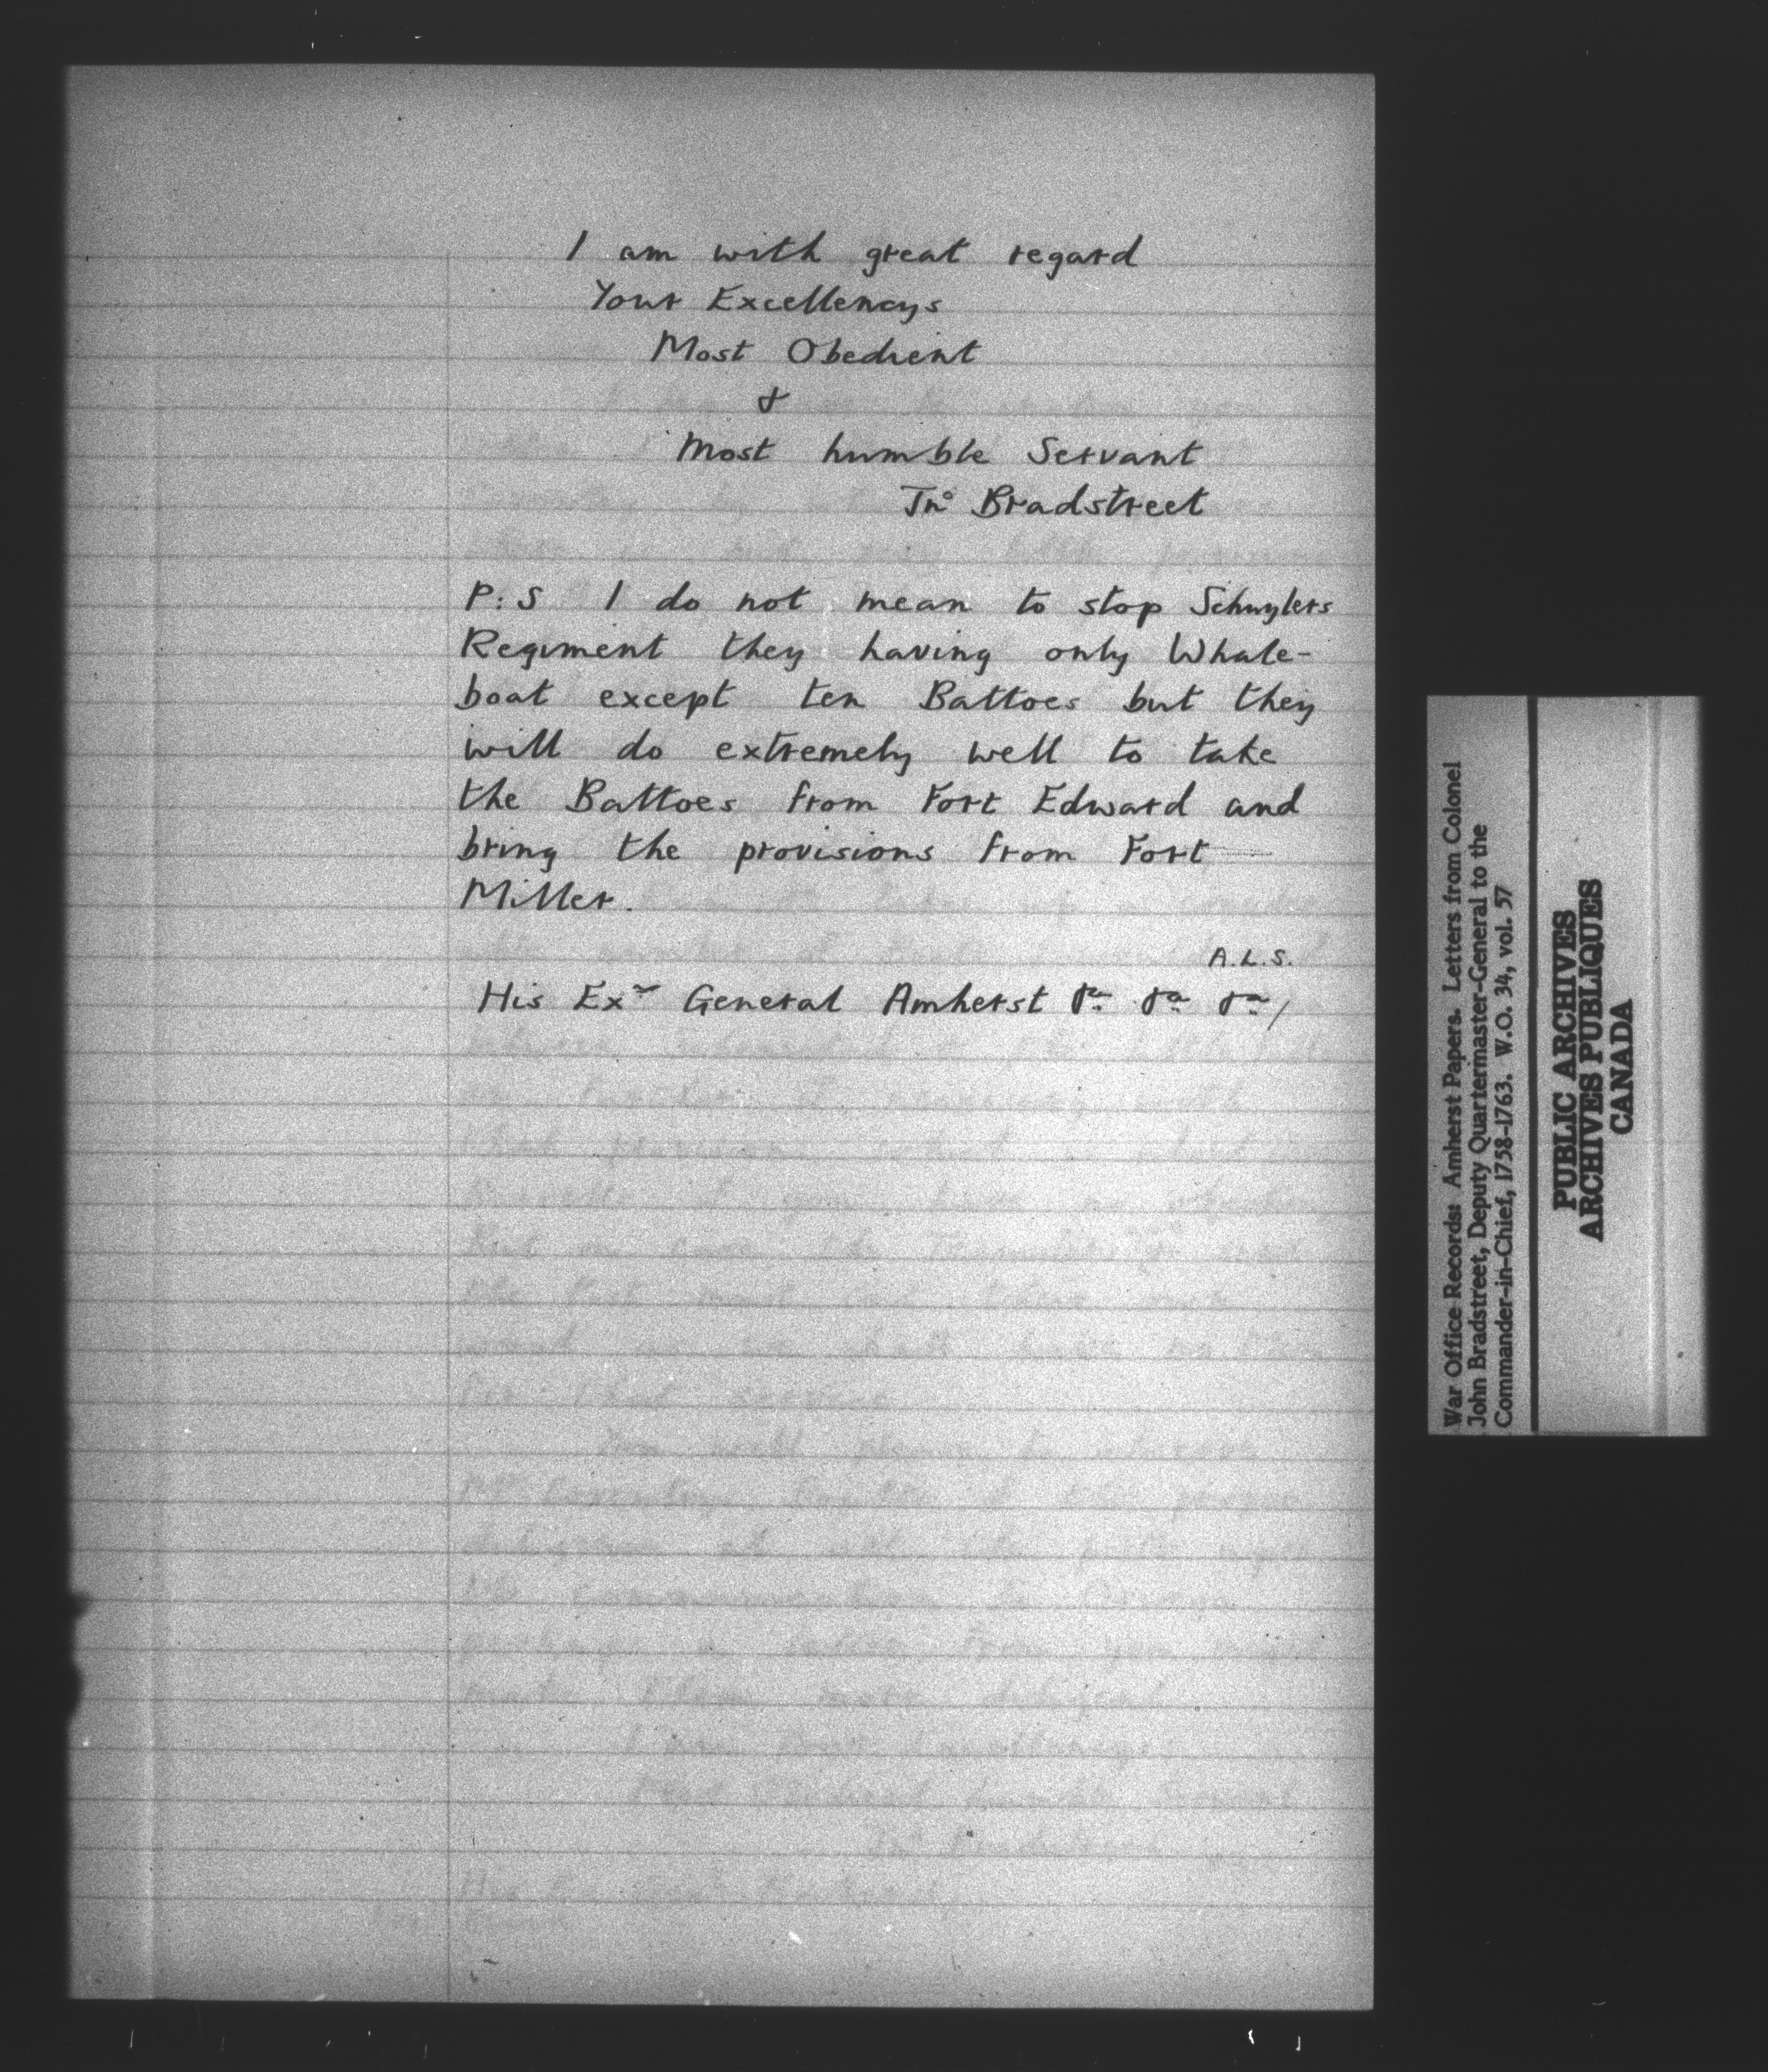 I am with great regard
Your Excellencys
Most Obedient
&
Most humble Servant
Jnº Bradstreet
P:S I do not mean to stop Schuylers
Regiment they having only Whale-
boat except ten Battoes but they
will do extremely well to take
the Battoes from Fort Edward and
bring the provisions from Fort
Miller.
A.L.S.
His Exʸ General Amherst &ca &ca &ca/
War Office Records: Amherst Papers. Letters from Colonel
John Bradstreet, Deputy Quartermaster-General to the
Commander-in-Chief, 1758-1763. W.O. 34, vol. 57
PUBLIC ARCHIVES
ARCHIVES PUBLIQUES
CANADA